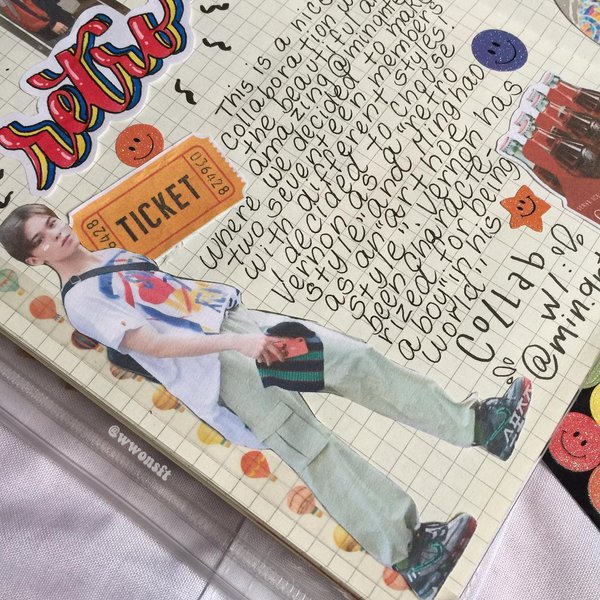 retro
036428
TICKET
6428
This is a nice
collaboration
the beautiful and
amazing
where we decided to make
two seventeen members
with different styles!
I decided to chose
Vernon as a "retro
style" and Minghao
as an "art hoe
style". Vernon has
been characte-
rized to being
a boy "in his
world".
Collab
w/:
@wwonsft